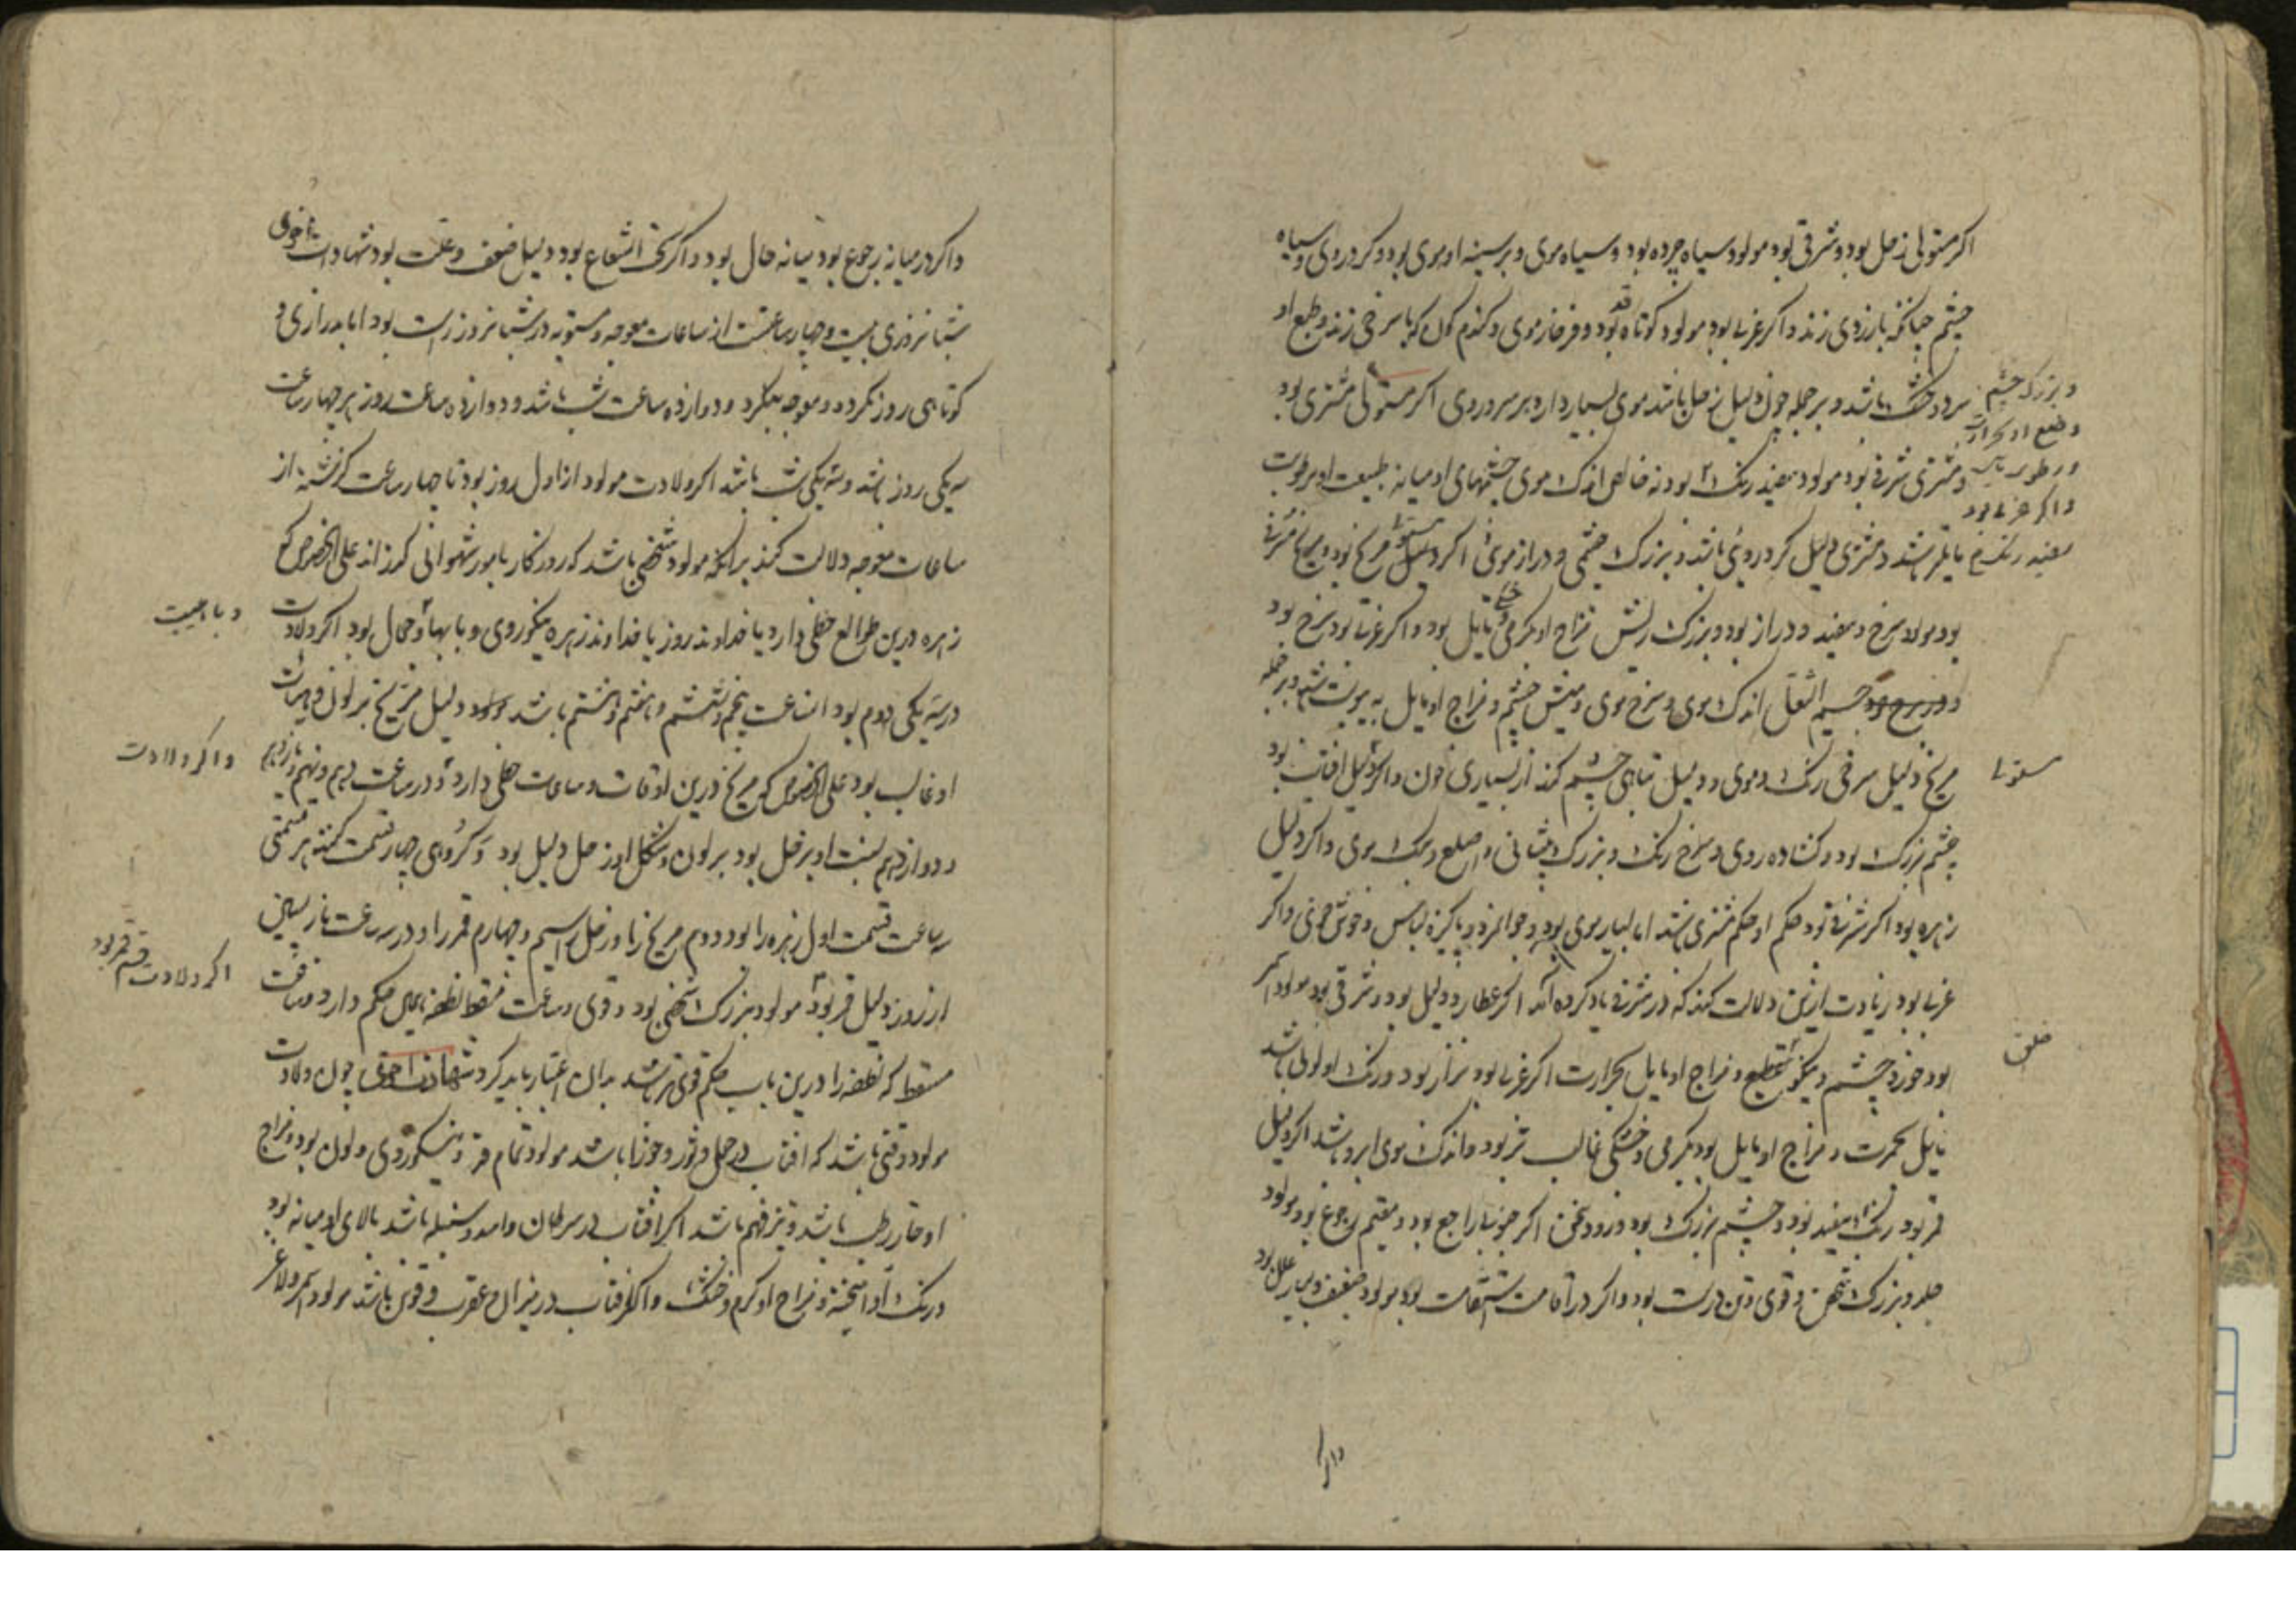 اکر مستولی زحل بود و مشرقی بود مولود سیاه چرده بود و سیاه موی و بر سینه او موی بود و کرد روی و سیاه
چشم چنانکه بازردی زند و اکر غربی بود مولود کوتاه قد بود و فرخار موی و کندم کون که با سرخی زند و طبع او
سرد و خشک باشد و بر جمله چون دلیل زحل باشد موی بسیار دارد بر سر و روی اکر مستولی مشتری بود
و بزرک چشم
و طبع او بحرارت
و مشتری شرقی بود مولود سفید رنک بود نه خالص اندک موی چشمهای او میانه طبیعت او برطوبت
و رطوبت
و اکر غربی بود
سفید رنک
مایلتر باشد و مشتری دلیل کرد رویی باشد و بزرک چشمی و دراز موی اکر مستولی مریخ بود و مریخ شرقی
بود مولود سرخ و سفید و دراز بود و بزرک ریش مزاج او بکرمی مایل بود و اکر غربی بود سرخ بود
و جسیم اندک موی و سرخ موی و میش چشم و مزاج او مایل به یبوست باشد و بر جمله
مریخ دلیل سرخی رنک و موی و دلیل تباهی چشم کند از بسیاری خون و اکر دلیل افتاب بود
چشم بزرک بود و کشاده روی و سرخ رنک و بزرک پیشانی و اصلع و تنک موی و اکر دلیل
زهره بود اکر شرقی بود حکم او حکم مشتری باشد اما بسیار موی بود و جوانمرد و پاکیزه لباس و خوش خوی و اکر
غربی بود زیادت ازین دلالت کند که در شرقی یاد کرده آمد اکر عطارد دلیل بود و شرقی بود مولود اسمر
بود خورد چشم و نیکو تقطیع و مزاج او مایل بحرارت اکر غربی بود نزار بود و رنک او لونی باشد
خلق
مایل بحمرت و مزاج او مایل بود بکرمی و خشکی غالب تر بود و اندک موی ابرو باشد اکر دلیل
قمر بود رنک سفید بود و چشم بزرک بود و زود سخن اکر راجع بود و مقیم رجوع بود مولود
جلد و بزرک شخص و قوی و تن درست بود و اکر در اقامت استقامت بود مولود ضعیف و بسیار علل بود
و اکر در میانه رجوع بود میانه حال بود و اکر تحت الشعاع بود دلیل ضعف و علت بود شهادت اخری
شبانروزی بیست و چهار ساعتست از ساعات معوجه و مستویه در شبانروز راست بود اما بدرازی و
کوتاهی روز نکردد و معوجه بکردد و دوازده ساعت شب باشد و دوازده ساعت روز هر چهار ساعت
سه یکی روز باشد و سه یکی شب باشد اکر ولادت مولود از اول روز بود تا چهار ساعت کذشته از
ساعات معوجه دلالت کند برانکه مولود شخصی باشد که روزکار بامور شهوانی کذراند علی الخصوص که
زهره درین طوالع حظی دارد یا خداوند روز یا خداوند زهره نیکو روی و با بها و جمال بود اکر ولادت
در سه یکی دوم بود از ساعت پنجم و ششم و هفتم و هشتم باشد مولود دلیل مریخ بر لون و هیات
او غالب بود علی الخصوص که مریخ درین اوقات و ساعات حظی دارد و در ساعت دهم و نهم و یازدهم
و اکر ولادت
و دوازدهم نسبت او بزحل بود بر لون و شکل او زحل دلیل بود و کروهی چهار قسمت کنند هر قسمتی
سه ساعت قسمت اول زهره را بود و دوم مریخ را و زحل را سیم و چهارم قمر را و در سه ساعت بازپسین
از روز دلیل قمر بود مولود بزرک شخص بود و قوی و ساعت مسقط نطفه حکم دارد و ساعت
اکر ولادت قسم قمر بود
مسقط که نطفه را درین باب حکم قوی تر باشد بدان اعتبار باید کرد شهادت اخری چون ولادت
مولود وقتی باشد که افتاب در حمل و ثور و جوزا باشد مولود تمام قد و نیکو روی و لون بود و مزاج
او حار رطب باشد و تیز فهم باشد اکر افتاب در سرطان و اسد و سنبله باشد بالای او میانه بود
و رنک او آمیخته و مزاج او کرم و خشک و اکر افتاب در میزان و عقرب و قوس باشد مولود اسمر و لاغر